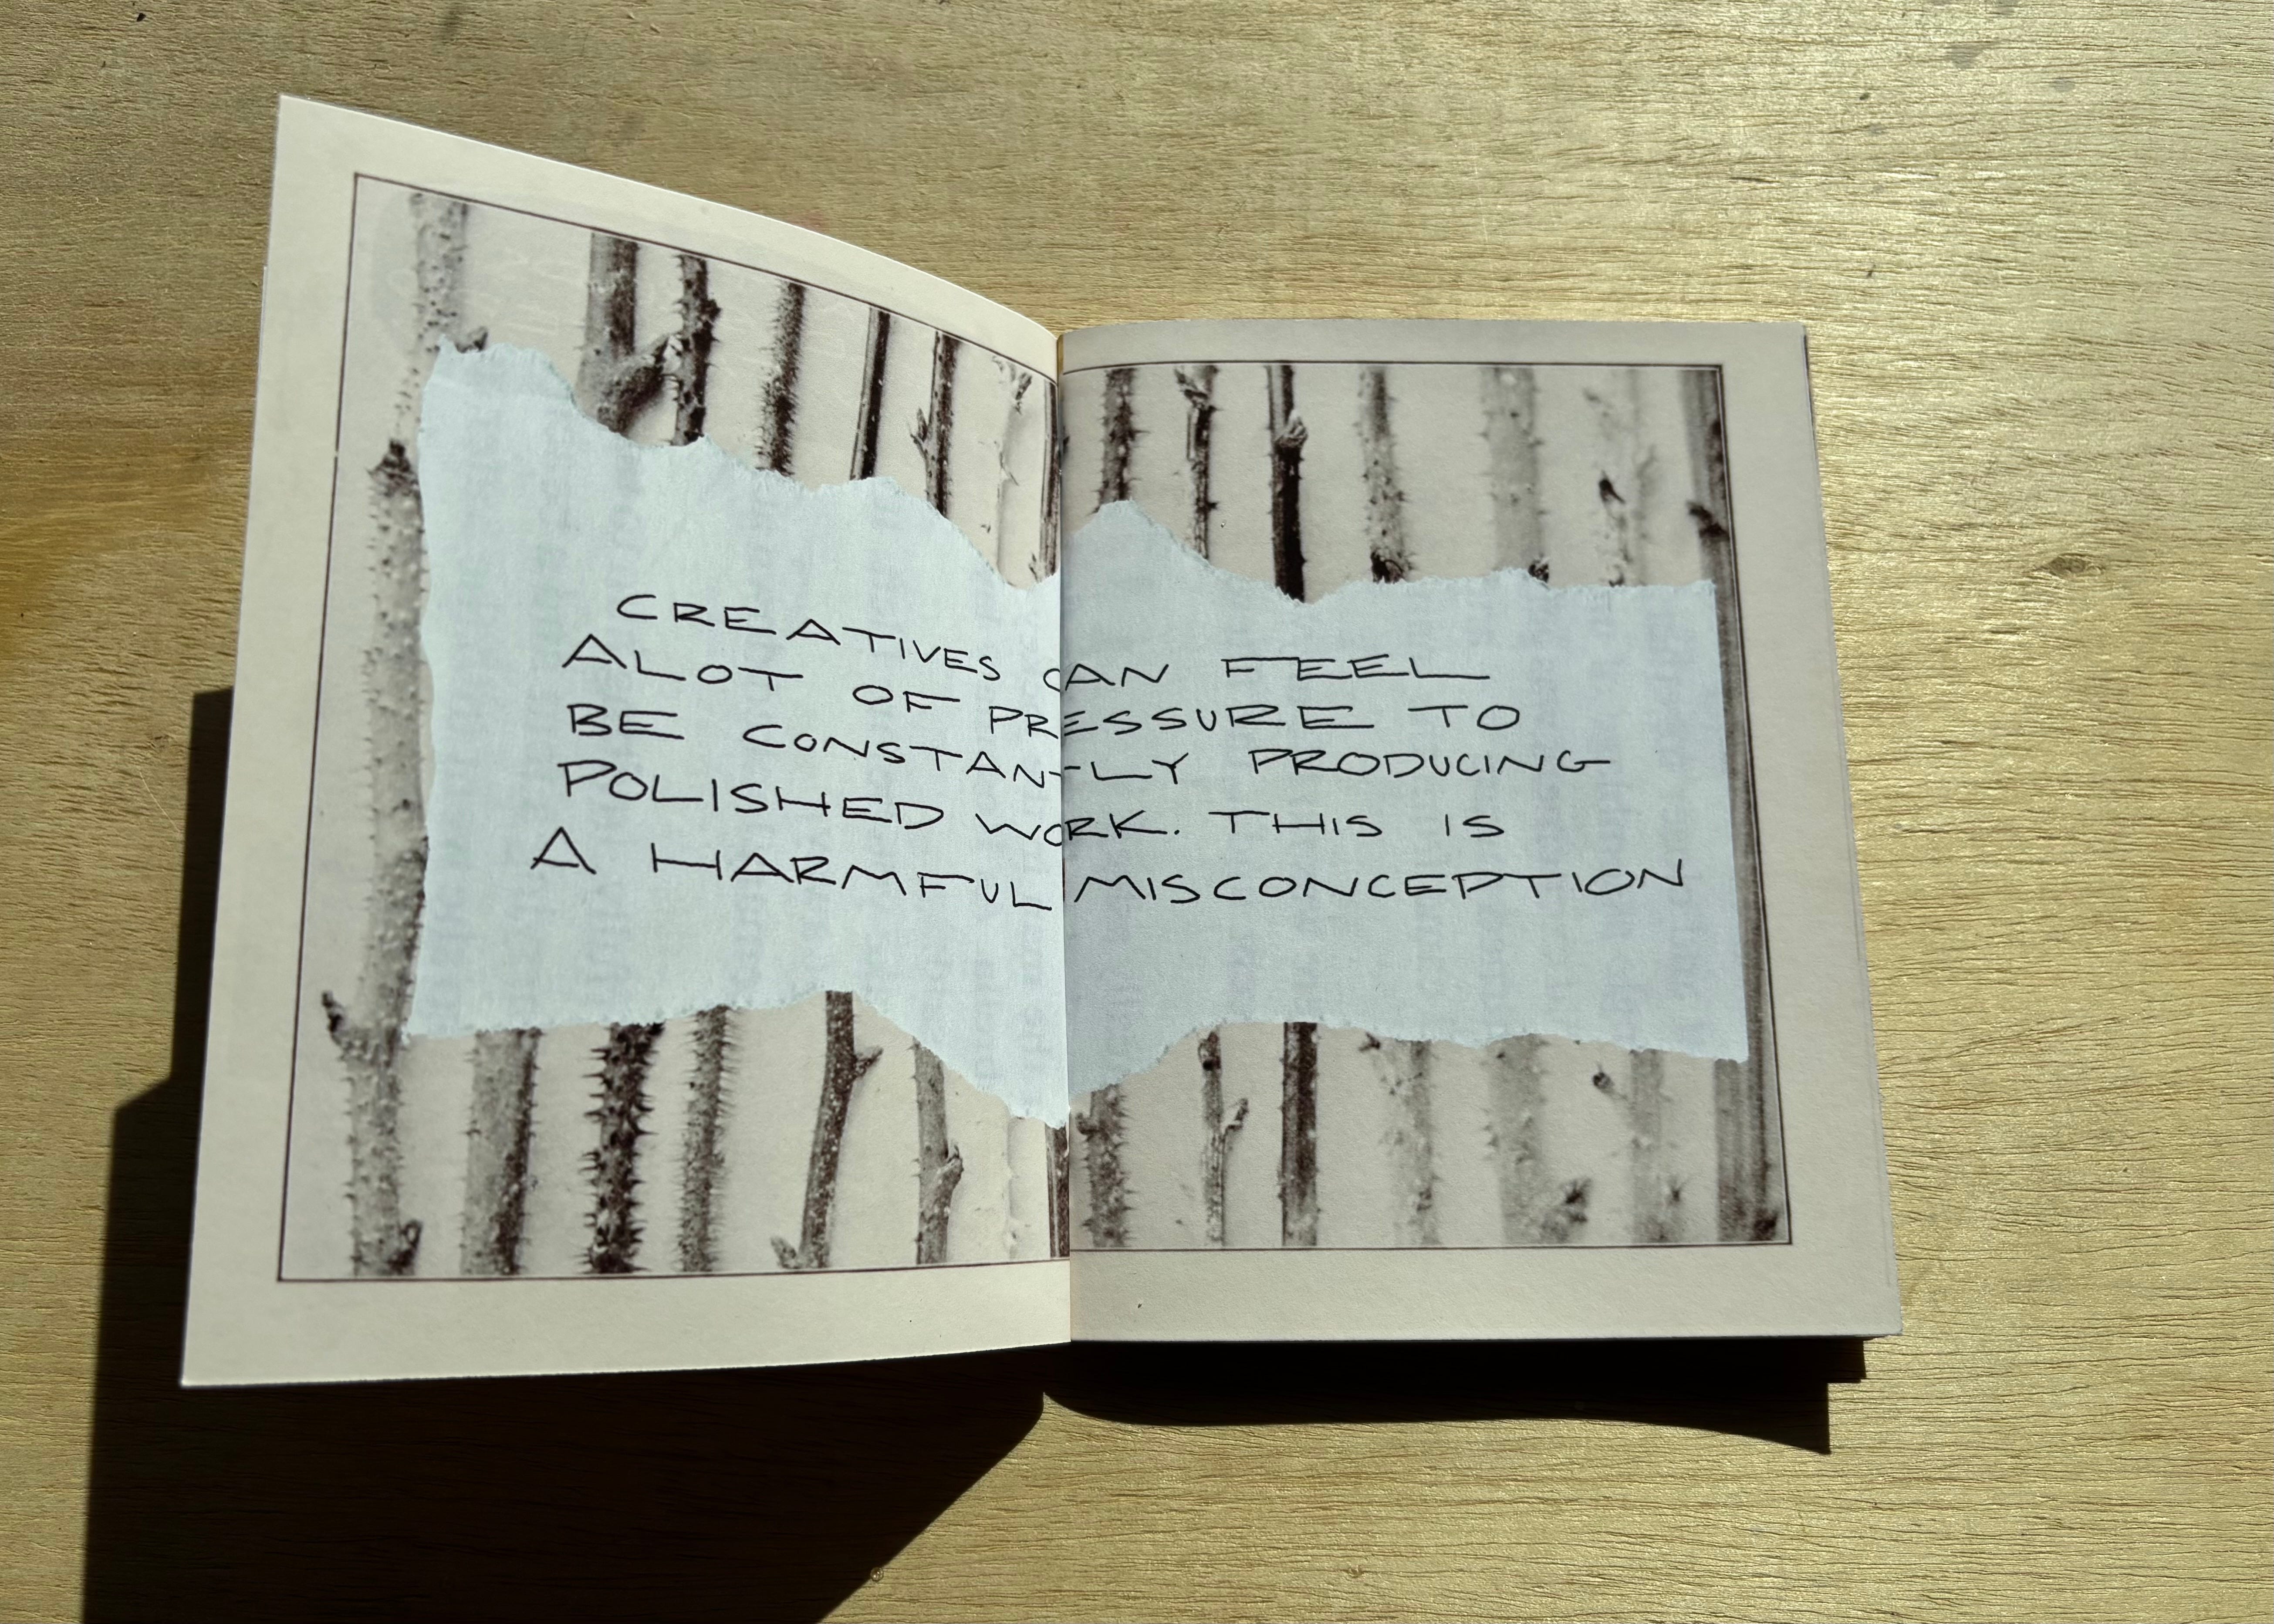 CREATIVES CAN FEEL
ALOT OF PRESSURE TO
BE CONSTANTLY PRODUCING
POLISHED WORK. THIS IS
A HARMFUL MISCONCEPTION